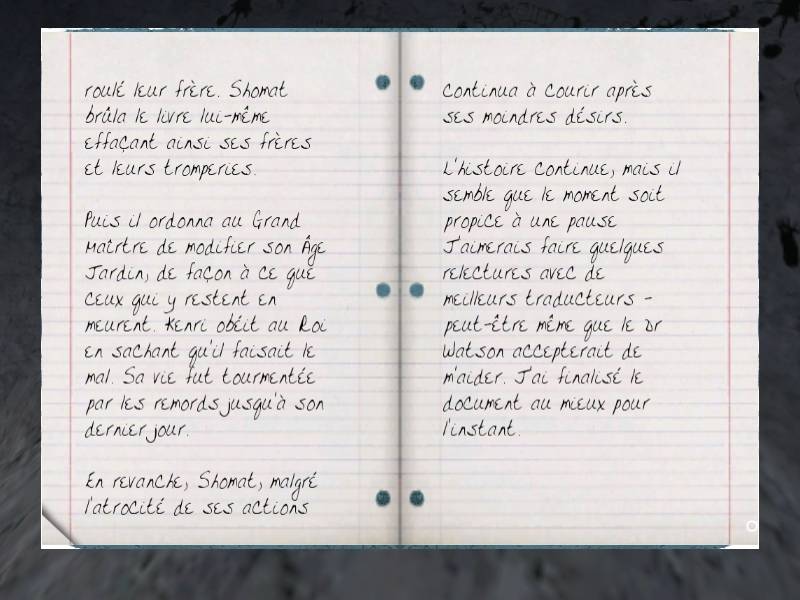 roulé leur frère. Shomat
brûla le livre lui-même
effaçant ainsi ses frères
et leurs tromperies.
Puis il ordonna au Grand
Maîrtre de modifier son Âge
Jardin, de façon à ce que
ceux qui y restent en
meurent. Kenri obéit au Roi
en sachant qu'il faisait le
mal. Sa vie fut tourmentée
par les remords jusqu'à son
dernier jour.
En revanche, Shomat, malgré
l'atrocité de ses actions
continua à courir après
ses moindres désirs.
L'histoire continue, mais il
semble que le moment soit
propice à une pause
J'aimerais faire quelques
relectures avec de
meilleurs traducteurs -
peut-être même que le Dr
Watson accepterait de
m'aider. J'ai finalisé le
document au mieux pour
l'instant.